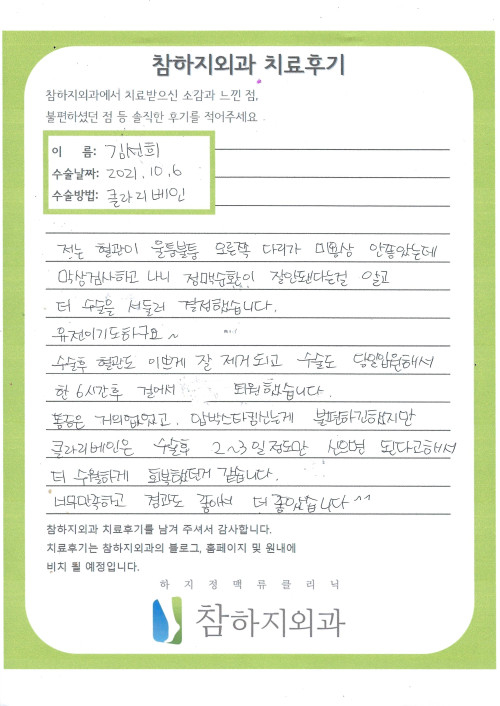 참하지외과 치료후기
참하지외과에서 치료받으신 소감과 느낀 점,
불편하셨던 점 등 솔직한 후기를 적어주세요
이 름: 김선희
수술날짜: 2021. 10. 6
수술방법: 클라리베인
저는 혈관이 울퉁불퉁 오른쪽 다리가 미용상 안좋았는데
막상검사하고 나니 정맥순환이 잘안된다는걸 알고
더 수술을 서둘러 결정했습니다.
유전이기도하구요~
수술후 혈관도 이쁘게 잘 제거되고 수술도 당일입원해서
한 6시간후 걸어서 퇴원했습니다.
통증은 거의없었고, 압박스타킹신는게 불편하긴했지만
클라리베인은 수술후 2~3일정도만 신으면 된다고해서
더 수월하게 회복했던거 같습니다.
너무만족하고 결과도 좋아서 더 좋았습니다^^
참하지외과 치료후기를 남겨 주셔서 감사합니다.
치료후기는 참하지외과의 블로그, 홈페이지 및 원내에
비치 될 예정입니다.
하지정맥류클리닉
참하지외과